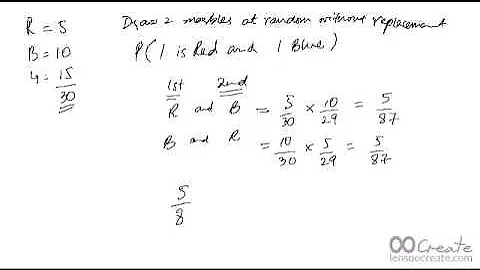 R = 5
B = 10
4 = 15
30
Draw 2 marbles at random without replacement
P ( 1 is Red and 1 Blue )
1st 2nd
R and B = 5/30 × 10/29 = 5/87
B and R = 10/30 × 5/29 = 5/87
5/8
Create
lensoocreate.com